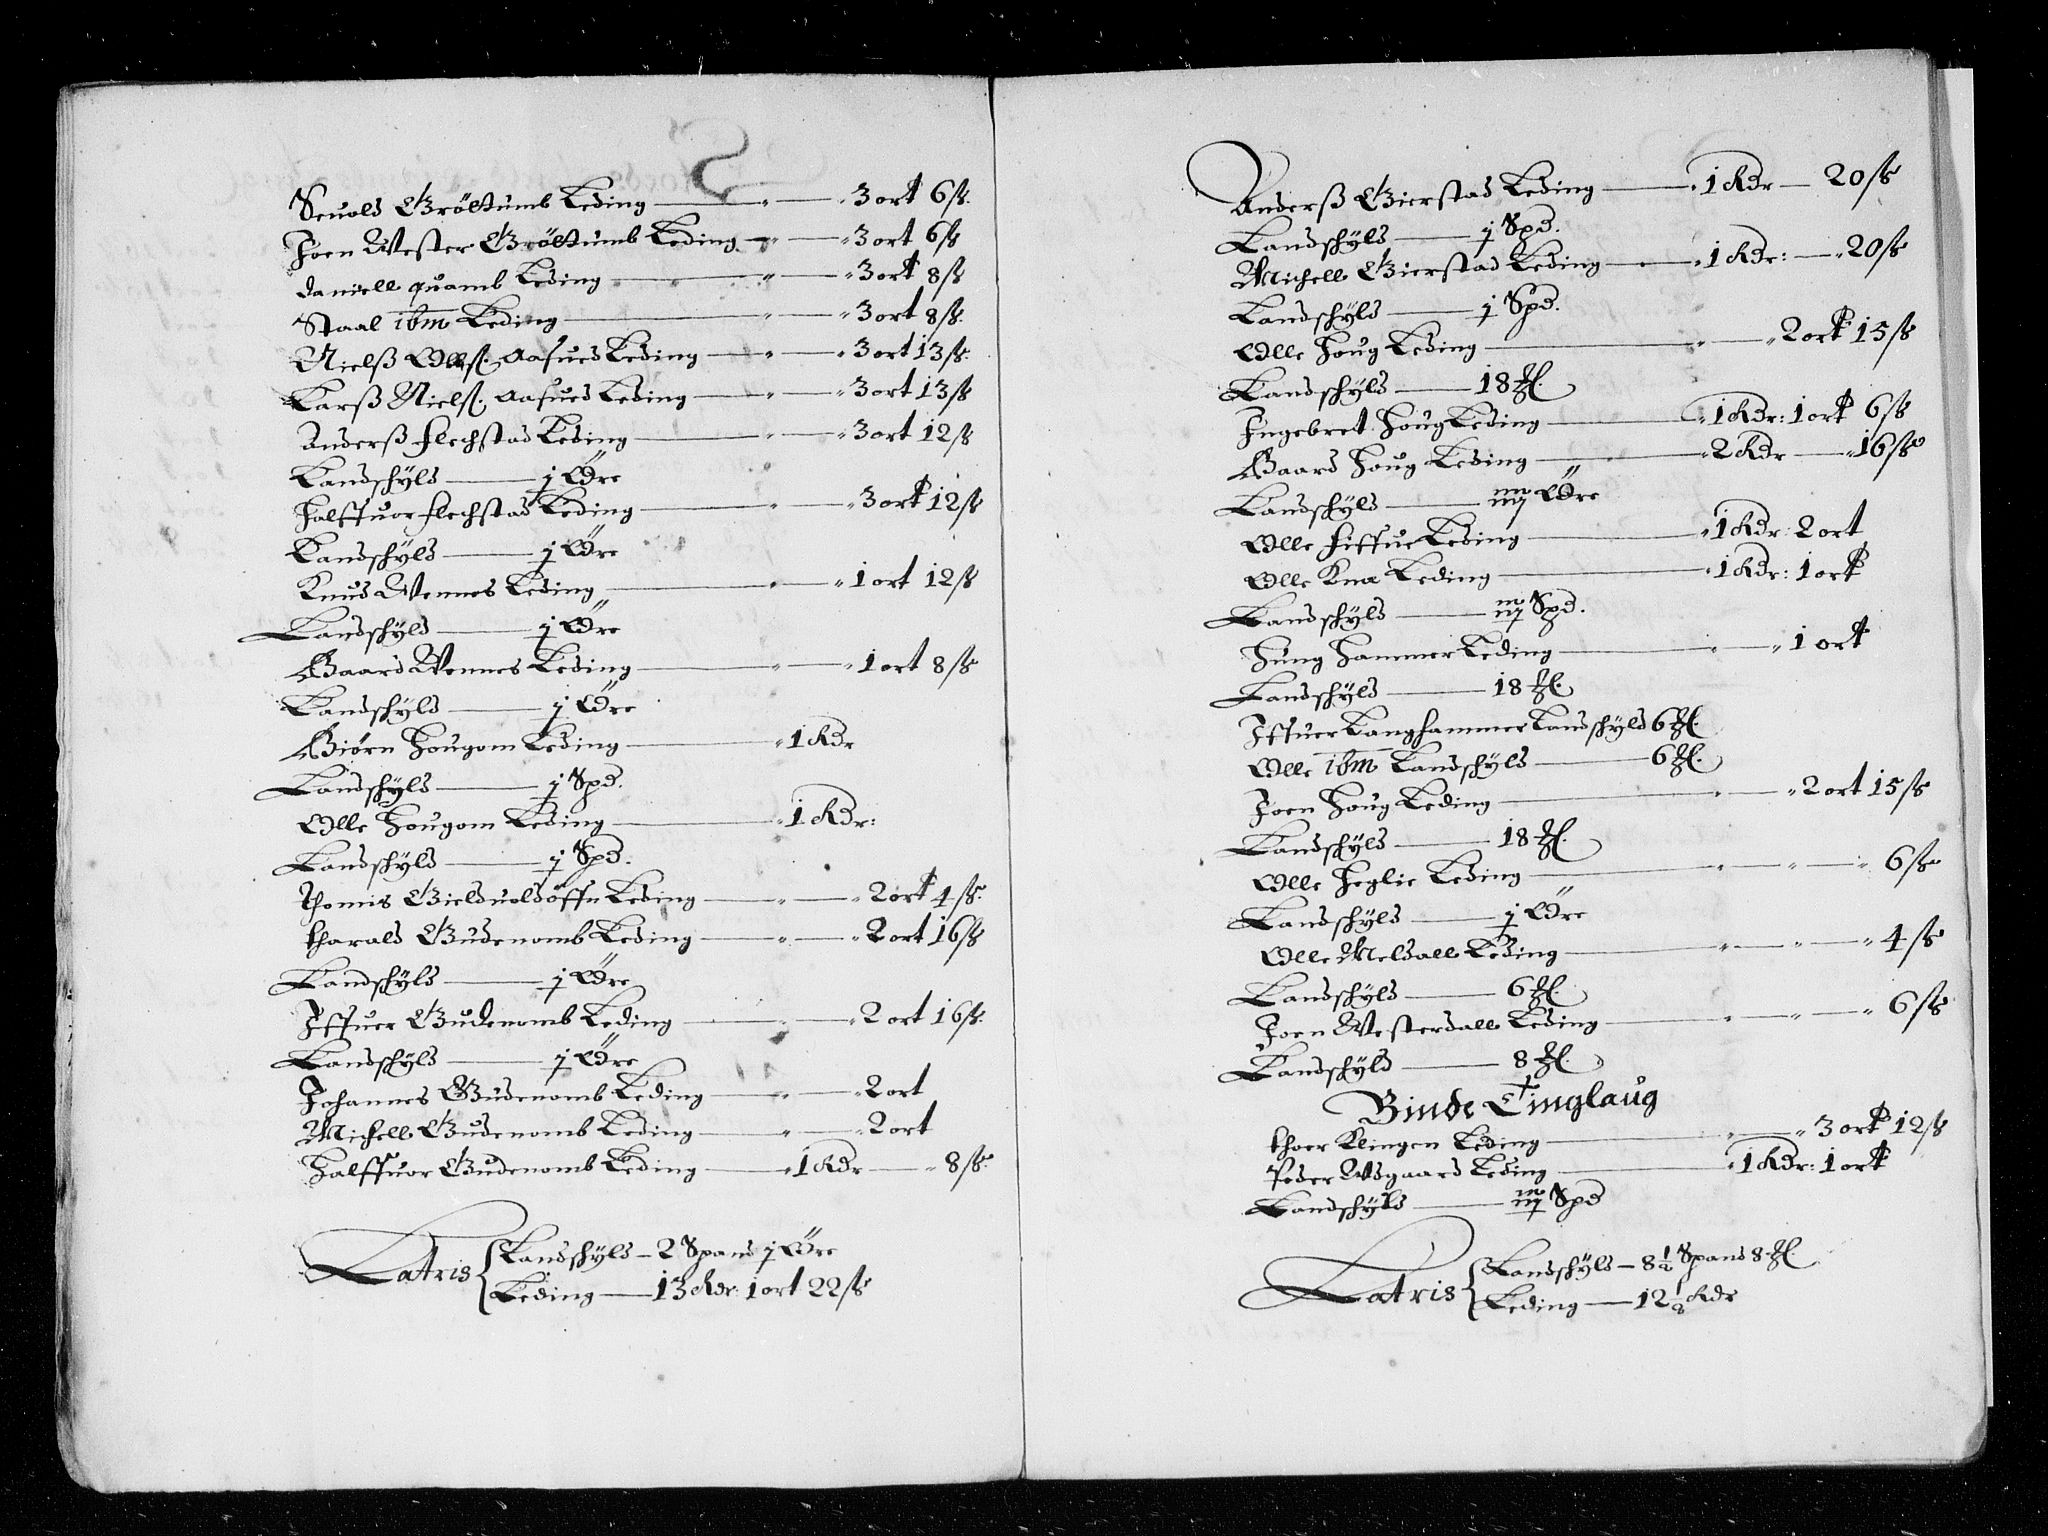 Seuold Gröttumb Leding — 3 ort 6 ß
Joen Wester Gröttumb Leding — 3 ort 6 ß
daniell quamb Leding — 3 ort 8 ß
Staal ibm Leding — 3 ort 8 ß
Nielß Ollß. Leding — 3 ort 13 ß
Larß Nielß. Leding — 3 ort 13 ß
Anderß flechstad Leding — 3 ort 12 ß
Landschÿld — j Öre
Halffuor flechstad Leding — 3 ort 12 ß
Landschÿld — j Öre
Knud Wennes Leding — 1 ort 12 ß
Landschÿld — j Öre
Baard Wennes Leding — 1 ort 8 ß
Landschÿld — j Öre
Biörn Hougom Leding — 1 Rdr
Landschÿld — j Spd.
Olle Hougom Leding — 1 Rdr:
Landschÿld — j Spd.
Thomis Leding — 2 ort 4 ß
tharald Gudenomb Leding — 2 ort 16 ß
Landschÿld — j Öre
Iffuer Gudenomb Leding — 2 ort 16 ß
Landschÿld — j Öre
Johannes Gudenomb Leding — 2 ort
Michell Gudenomb Leding — 2 ort
Halffuor Gudenomb Leding — 1 Rdr — 8 ß
Latris { Landschÿld – 2 Spand j Öre
Leding — 13 Rdr: 1 ort 22 ß
Anderß Gierstad Leding — 1 Rdr — 20 ß
Landschÿld — j Spd.
Michell Gierstad Leding — 1 Rdr: — 20 ß
Landschÿld — j Spd.
Olle Houg Leding — 2 ort 15 ß
Landschÿld — 18 ℔.
Ingebret Houg Leding — 1 Rdr: 1 ort 6 ß
Baard Houg Leding — 2 Rdr — 16 ß
Landschÿld — Öre
Olle Leding — 1 Rdr 2 ort
Olle Kna Leding — 1 Rdr: 1 ort
Landschÿld — Spd.
Hammer Leding — 1 ort
Landschÿld — 18 ℔.
Iffuer Langhammer Landschÿld 6 ℔.
Olle ibm Landschÿld — 6 ℔.
Joen Houg Leding — 2 ort 15 ß
Landschÿld — 18 ℔.
Olle Heglie Leding — 6 ß
Landschÿld — j Öre
Olle Meldall Leding — 4 ß
Landschÿld — 6 ℔.
Joen Westerdall Leding — 6 ß
Landschÿld — 8 ℔.
Binde Tinglaug
thoer Klingen Leding — 3 ort 12 ß
Peder Leding — 1 Rdr: 1 ort
Landschÿld — Spd
Latris { Landschÿld – 8 ½ Spand 8 ℔.
Leding — 12 ½ Rdr